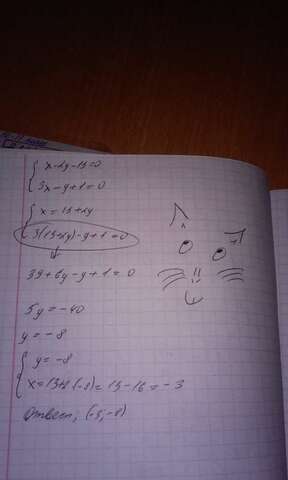 x-2y-13=0
3x-y+1=0
x=13+2y
3(13+2y)-y+1=0
39+6y-y+1=0
5y=-40
y=-8
y=-8
x=13+2·(-8)=13-16=-3
Ответ: (-3;-8)